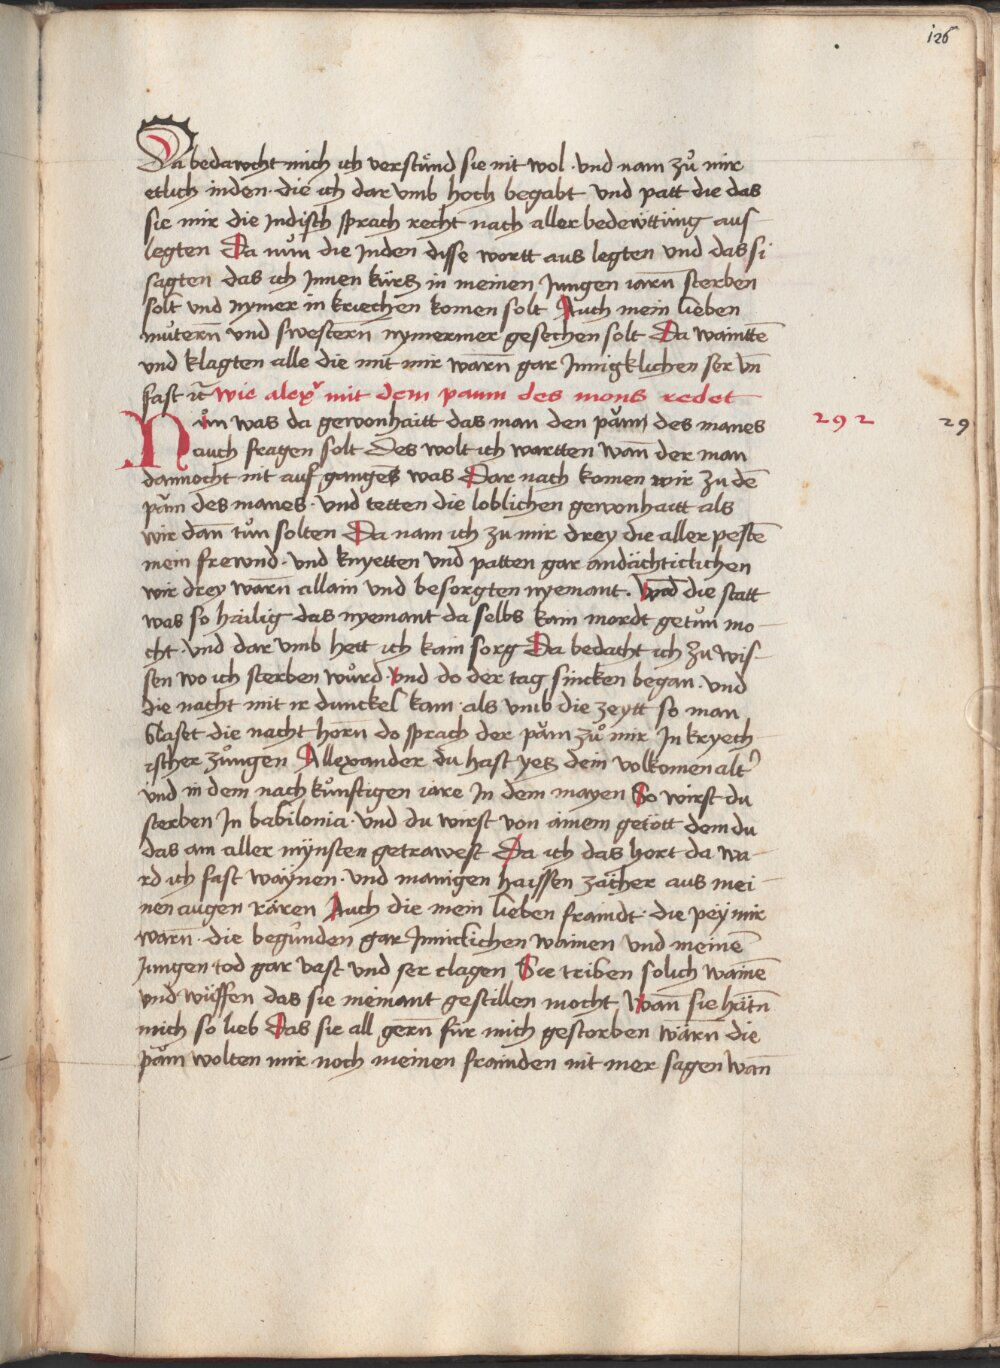 126
Da bedawcht mich ich verstůnd sie nit wol · vnd nam zů mir
etlich inden · die ich dar vmb hoch begabt vnd patt die das
sie mir die Indisch sprach recht nach aller bedewtting aus
legten Da nůn die Inden disse wortt aus legten vnd das si
sagten das ich Innen kürtz in meinen Jungen iarn̄ sterben
solt vnd nymer in kriechen komen solt Auch mein lieben
můtern̄ vnd swestern̄ nymermer gesechen solt Da waintten̄
vnd klagten alle die mit mir warn̄ gar Jnnigklichen ser vn̄
fast ꝛc̄ wie alexr mit dem paum des mons redet
Nůn was da gewonhaitt das man den påm des manes
auch fragen solt Des wolt ich wartten wan̄ der man
dannocht nit auf ganges was Dar nach komen wir zu dē
påm des manes · vnd tetten die loblichen gewonhaitt als
wir dan̄ tůn solten Da nam ich zu mir drey die aller pestē
mein frewnd · vnd knyetten vnd patten gar andächticlichen
wir drey warn̄ allain vnd besorgten nyemant · Wnd die statt
was so hailig das nyemant da selbs kain mordt getůn mo-
cht · vnd dar vmb hett ich kain sorg Da bedacht ich zu wis-
sen wo ich sterben wůrd · vnd do der tag sincken began · vnd
die nacht mit ir dunckel kam · als vmb die zeytt so man
blaset die nacht horn̄ do sprach der påm zů mir In kryech-
ischer zůngen Allexander du hast yetz dein volkomen alt'
vnd in dem nach kůnftigen iare In dem mayen So wirst du
sterben In babilonia · vnd du wirst von ainem getött dem du
das am aller mynsten getrawest Da ich das hort da wa-
rd ich fast waynen · vnd manigen haissen zächer aus mei-
nen augen rären Auch die mein lieben framdt · die pey mir
warn̄ · die begunden gar Jnnicklichen wainen vnd meinē
Jungen tod gar vast vnd ser clagen Sie triben solich wainē
vnd wüffen das sie niemant gestillen mocht, wan sie hätn̄
mich so lieb Das sie all gern̄ für mich gestorben wärn̄ die
påm wolten mir noch meinen frainden nit mer sagen wan̄
292
29